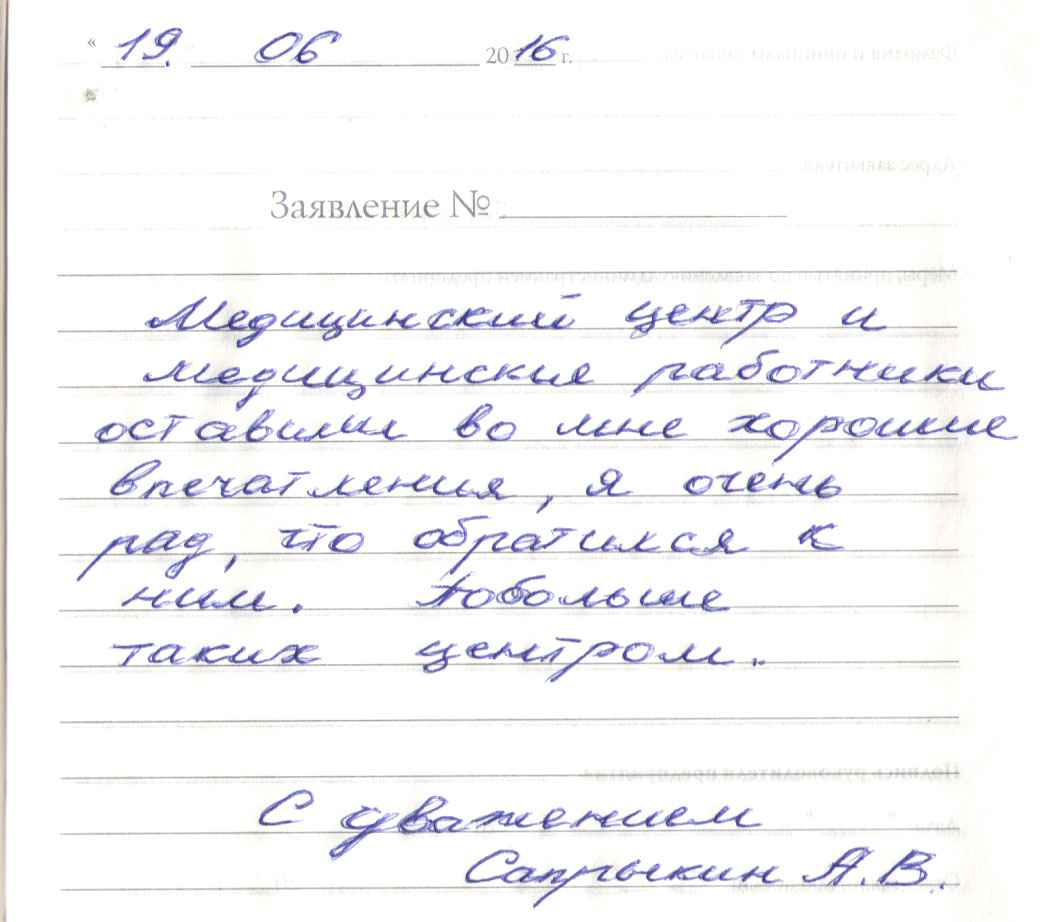 « 19. 06 2016 г.
Заявление №
Медицинский центр и
медицинские работники
оставили во мне хорошие
впечатления, я очень
рад, что обратился к
ним. Побольше
таких центром.
С уважением
Сапрыкин А.В.